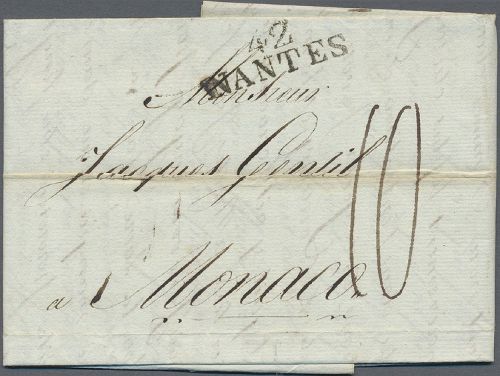 42
NANTES
Monsieur
Jacques Gentil
10
a Monaco